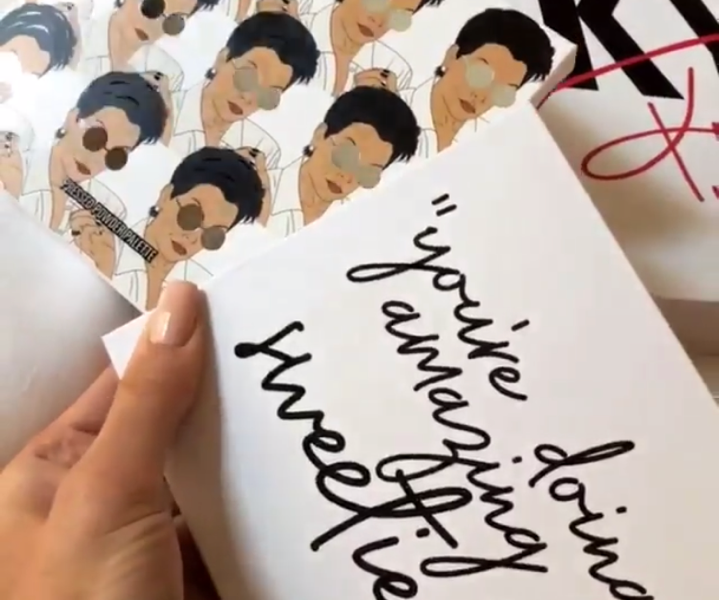 PRESSED POWDER PALETTE
"you're doing
amazing
sweetie